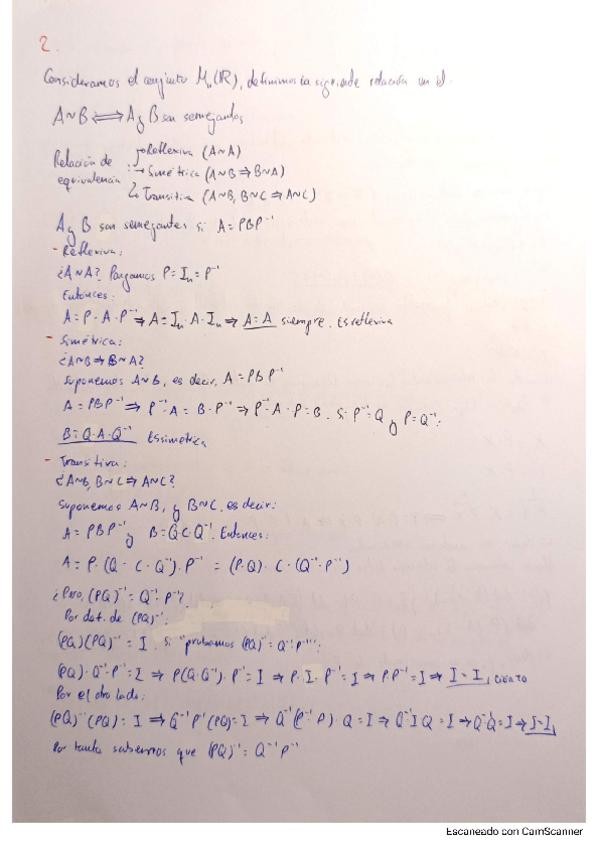 2.
Consideramos el conjunto Mn(IR), definimos la siguiente relación en él:
A~B ⟺ A y B son semejantes
Relación de equivalencia :
→ Reflexiva (A~A)
→ Simétrica (A~B ⇒ B~A)
↳ Transitiva (A~B, B~C ⇒ A~C)
A y B son semejantes si A = PBP⁻¹
- Reflexiva:
¿A~A? Pongamos P = In = P⁻¹
Entonces:
A = P · A · P⁻¹ ⇒ A = In · A · In ⇒ A = A siempre. Es reflexiva
- Simétrica:
¿A~B ⇒ B~A?
Suponemos A~B, es decir, A = PBP⁻¹
A = PBP⁻¹ ⇒ P⁻¹ · A = B · P⁻¹ ⇒ P⁻¹ · A · P = B . Si P⁻¹ = Q y P = Q⁻¹:
B = Q · A · Q⁻¹ Es simétrica
- Transitiva:
¿A~B, B~C ⇒ A~C?
Suponemos A~B, y B~C, es decir:
A = PBP⁻¹ y B = QCQ⁻¹. Entonces:
A = P · (Q · C · Q⁻¹) · P⁻¹ = (P·Q) · C · (Q⁻¹ · P⁻¹)
¿Pero, (PQ)⁻¹ = Q⁻¹ · P⁻¹?
Por def. de (PQ)⁻¹:
(PQ)(PQ)⁻¹ = I . Si "probamos (PQ)⁻¹ = Q⁻¹P⁻¹":
(PQ) · Q⁻¹ · P⁻¹ = I ⇒ P(Q·Q⁻¹) · P⁻¹ = I ⇒ P · I · P⁻¹ = I ⇒ P·P⁻¹ = I ⇒ I = I, cierto
Por el otro lado:
(PQ)⁻¹(PQ) = I ⇒ Q⁻¹P⁻¹(PQ) = I ⇒ Q⁻¹(P⁻¹P) · Q = I ⇒ Q⁻¹IQ = I ⇒ Q⁻¹Q = I ⇒ I = I,
Por tanto sabemos que (PQ)⁻¹ = Q⁻¹P⁻¹
Escaneado con CamScanner